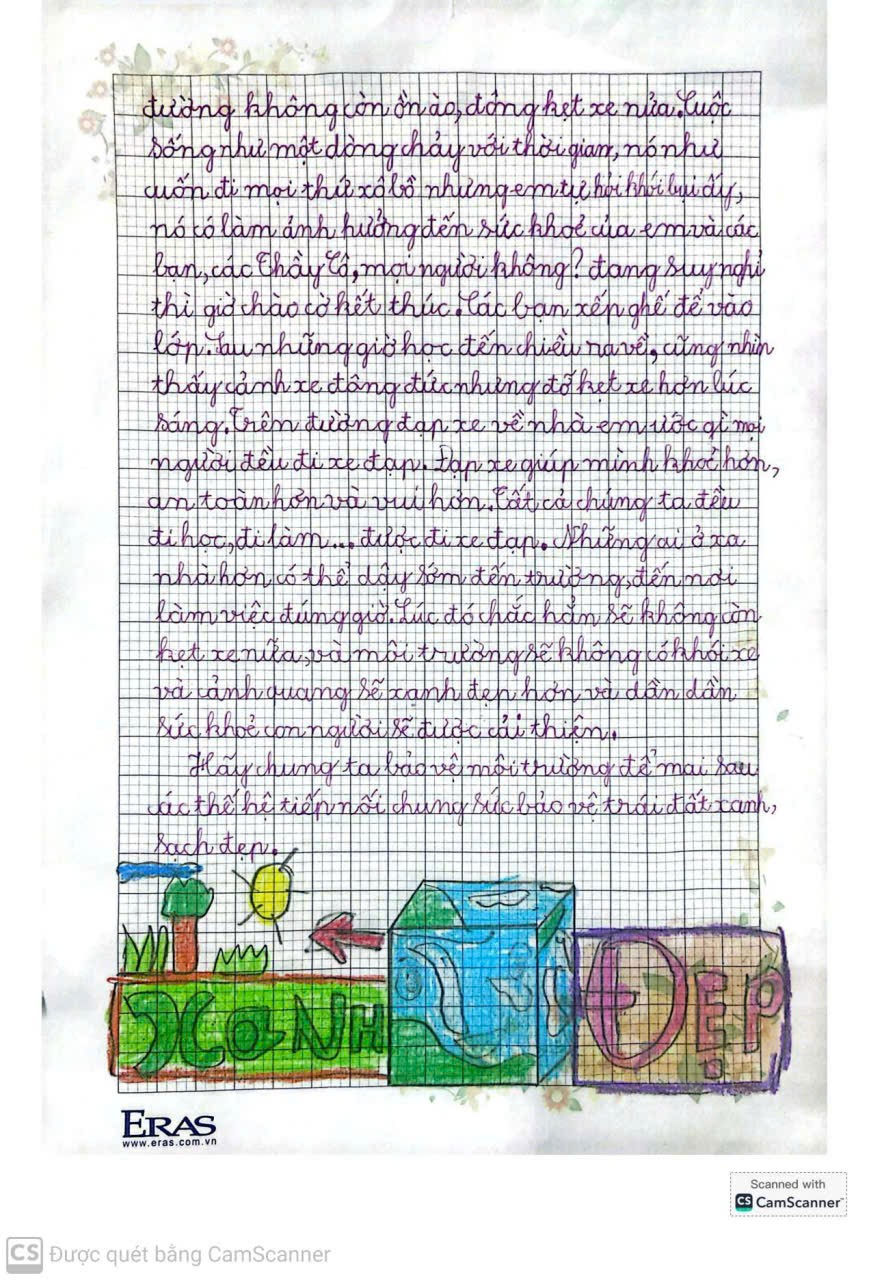 đường không còn ồn ào, đông kẹt xe nữa. Cuộc
sống như một dòng chảy với thời gian, nó như
cuốn đi mọi thứ xô bồ nhưng em tự hỏi khói bụi ấy,
nó có làm ảnh hưởng đến sức khoẻ của em và các
bạn, các Thầy Cô, mọi người không? đang suy nghĩ
thì giờ chào cờ kết thúc. Các bạn xếp ghế để vào
lớp. Sau những giờ học đến chiều ra về, cũng nhìn
thấy cảnh xe đông đúc nhưng đỡ kẹt xe hơn lúc
sáng. Trên đường đạp xe về nhà em ước gì mọi
người đều đi xe đạp. Đạp xe giúp mình khoẻ hơn,
an toàn hơn và vui hơn. Tất cả chúng ta đều
đi học, đi làm... được đi xe đạp. Những ai ở xa
nhà hơn có thể dậy sớm đến trường, đến nơi
làm việc đúng giờ. Lúc đó chắc hẳn sẽ không còn
kẹt xe nữa, và môi trường sẽ không có khói xe
và cảnh quang sẽ xanh đẹp hơn và dần dần
sức khoẻ con người sẽ được cải thiện.
Hãy chung ta bảo vệ môi trường để mai sau
các thế hệ tiếp nối chung sức bảo vệ trái đất xanh,
sạch đẹp.
XaNH
ĐẸP
ERAS
www.eras.com.vn
Scanned with
CS CamScanner™
CS Được quét bằng CamScanner